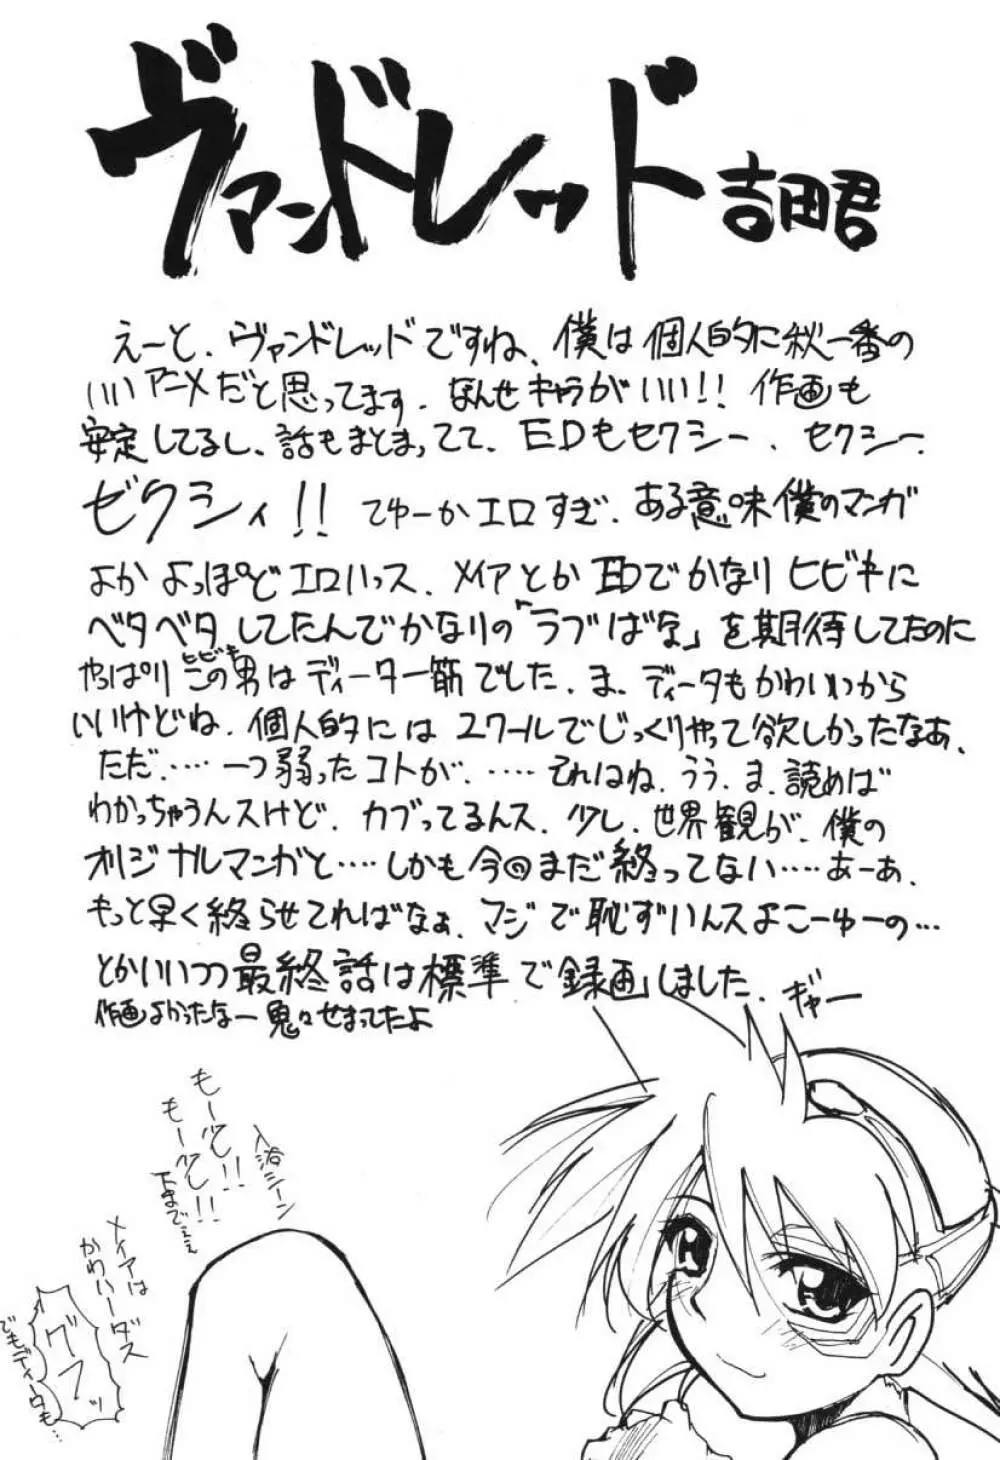 ヴァンドレッド 吉田君
えーと、ヴァンドレッドですね、僕は個人的に秋一番の
いいアニメだと思ってます。なんせキャラがいい!! 作画も
安定してるし、話もまとまってて、EDもセクシー、セクシー、
ゼクシィ!! てゆーかエロすぎ、ある意味僕のマンガ
よか よっぽどエロいっス、メイアとかEDでかなりヒビキに
ベタベタしてたんでかなりの「ラブばな」を期待してたのに
やっぱりこの男はディーター筋でした、ま、ディータもかわいいから
ヒビキ
いいけどね、個人的には 2クールでじっくりやって欲しかったなぁ、
ただ、……一つ弱ったコトが、……それはね、うう、ま、読めば
わかっちゃうんスけど、カブってるんス、少し、世界観が、僕の
オリジナルマンガと……しかも今回まだ終ってない……あーぁ、
もっと早く終らせてればなぁ、マジで恥ずいんスよこーゆーの…
とかいいつつ最終話は標準で録画しました、ギャー
作画よかったなー 鬼々せまってたよ
入浴シーン
もーてし!!
もーてし!!
下までぇぇ
メイアは
かわいーダス
グフッ
でもディータも…